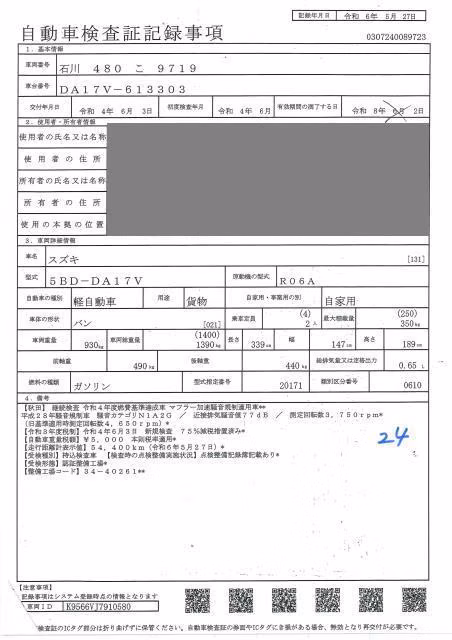 記録年月日 令和 6年 5月 27日
自動車検査証記録事項
0307240089723
1. 基本情報
車両番号 石川 480 こ 9719
車台番号 DA17V-613303
交付年月日 令和 4年 6月 3日 初度検査年月 令和 4年 6月 有効期間の満了する日 令和 8年 6月 2日
2. 使用者・所有者情報
使用者の氏名又は名称
使用者の住所
所有者の氏名又は名称
所有者の住所
使用の本拠の位置
3. 車両詳細情報
車名 スズキ [131]
型式 5BD-DA17V 原動機の型式 R06A
自動車の種別 軽自動車 用途 貨物 自家用・事業用の別 自家用
車体の形状 バン [021] 乗車定員 (4) 2人 最大積載量 (250) 350kg
車両重量 930kg 車両総重量 (1400) 1390kg 長さ 339cm 幅 147cm 高さ 189cm
前軸重 490kg 後軸重 440kg 総排気量又は定格出力 0.65 L
燃料の種類 ガソリン 型式指定番号 20171 類別区分番号 0610
4. 備考
【秋田】 継続検査 令和4年度燃費基準達成車 マフラー加速騒音規制適用車**
平成28年騒音規制車 騒音カテゴリN1A2G / 近接排気騒音値77dB / 測定回転数3,750rpm*
(旧基準適用時測定回転数4,650rpm)*
【令和3年度税制】令和4年6月3日 新規検査 75%減税措置済み*
【自動車重量税額】¥5,000 本則税率適用*
【走行距離計表示値】54,400km(令和6年5月27日)*
【受検種別】持込検査車 【検査時の点検整備実施状況】点検整備記録簿記載あり*
【受検形態】認証整備工場*
【整備工場コード】34-40261**
24
【注意事項】
記録事項はシステム登録時点の情報となります
車両ID K9566VJ7910580
検査証のICタグ部分は折り曲げずに保管ください。自動車検査証の券面やICタグにき損がある場合、無効となり再交付が必要です。